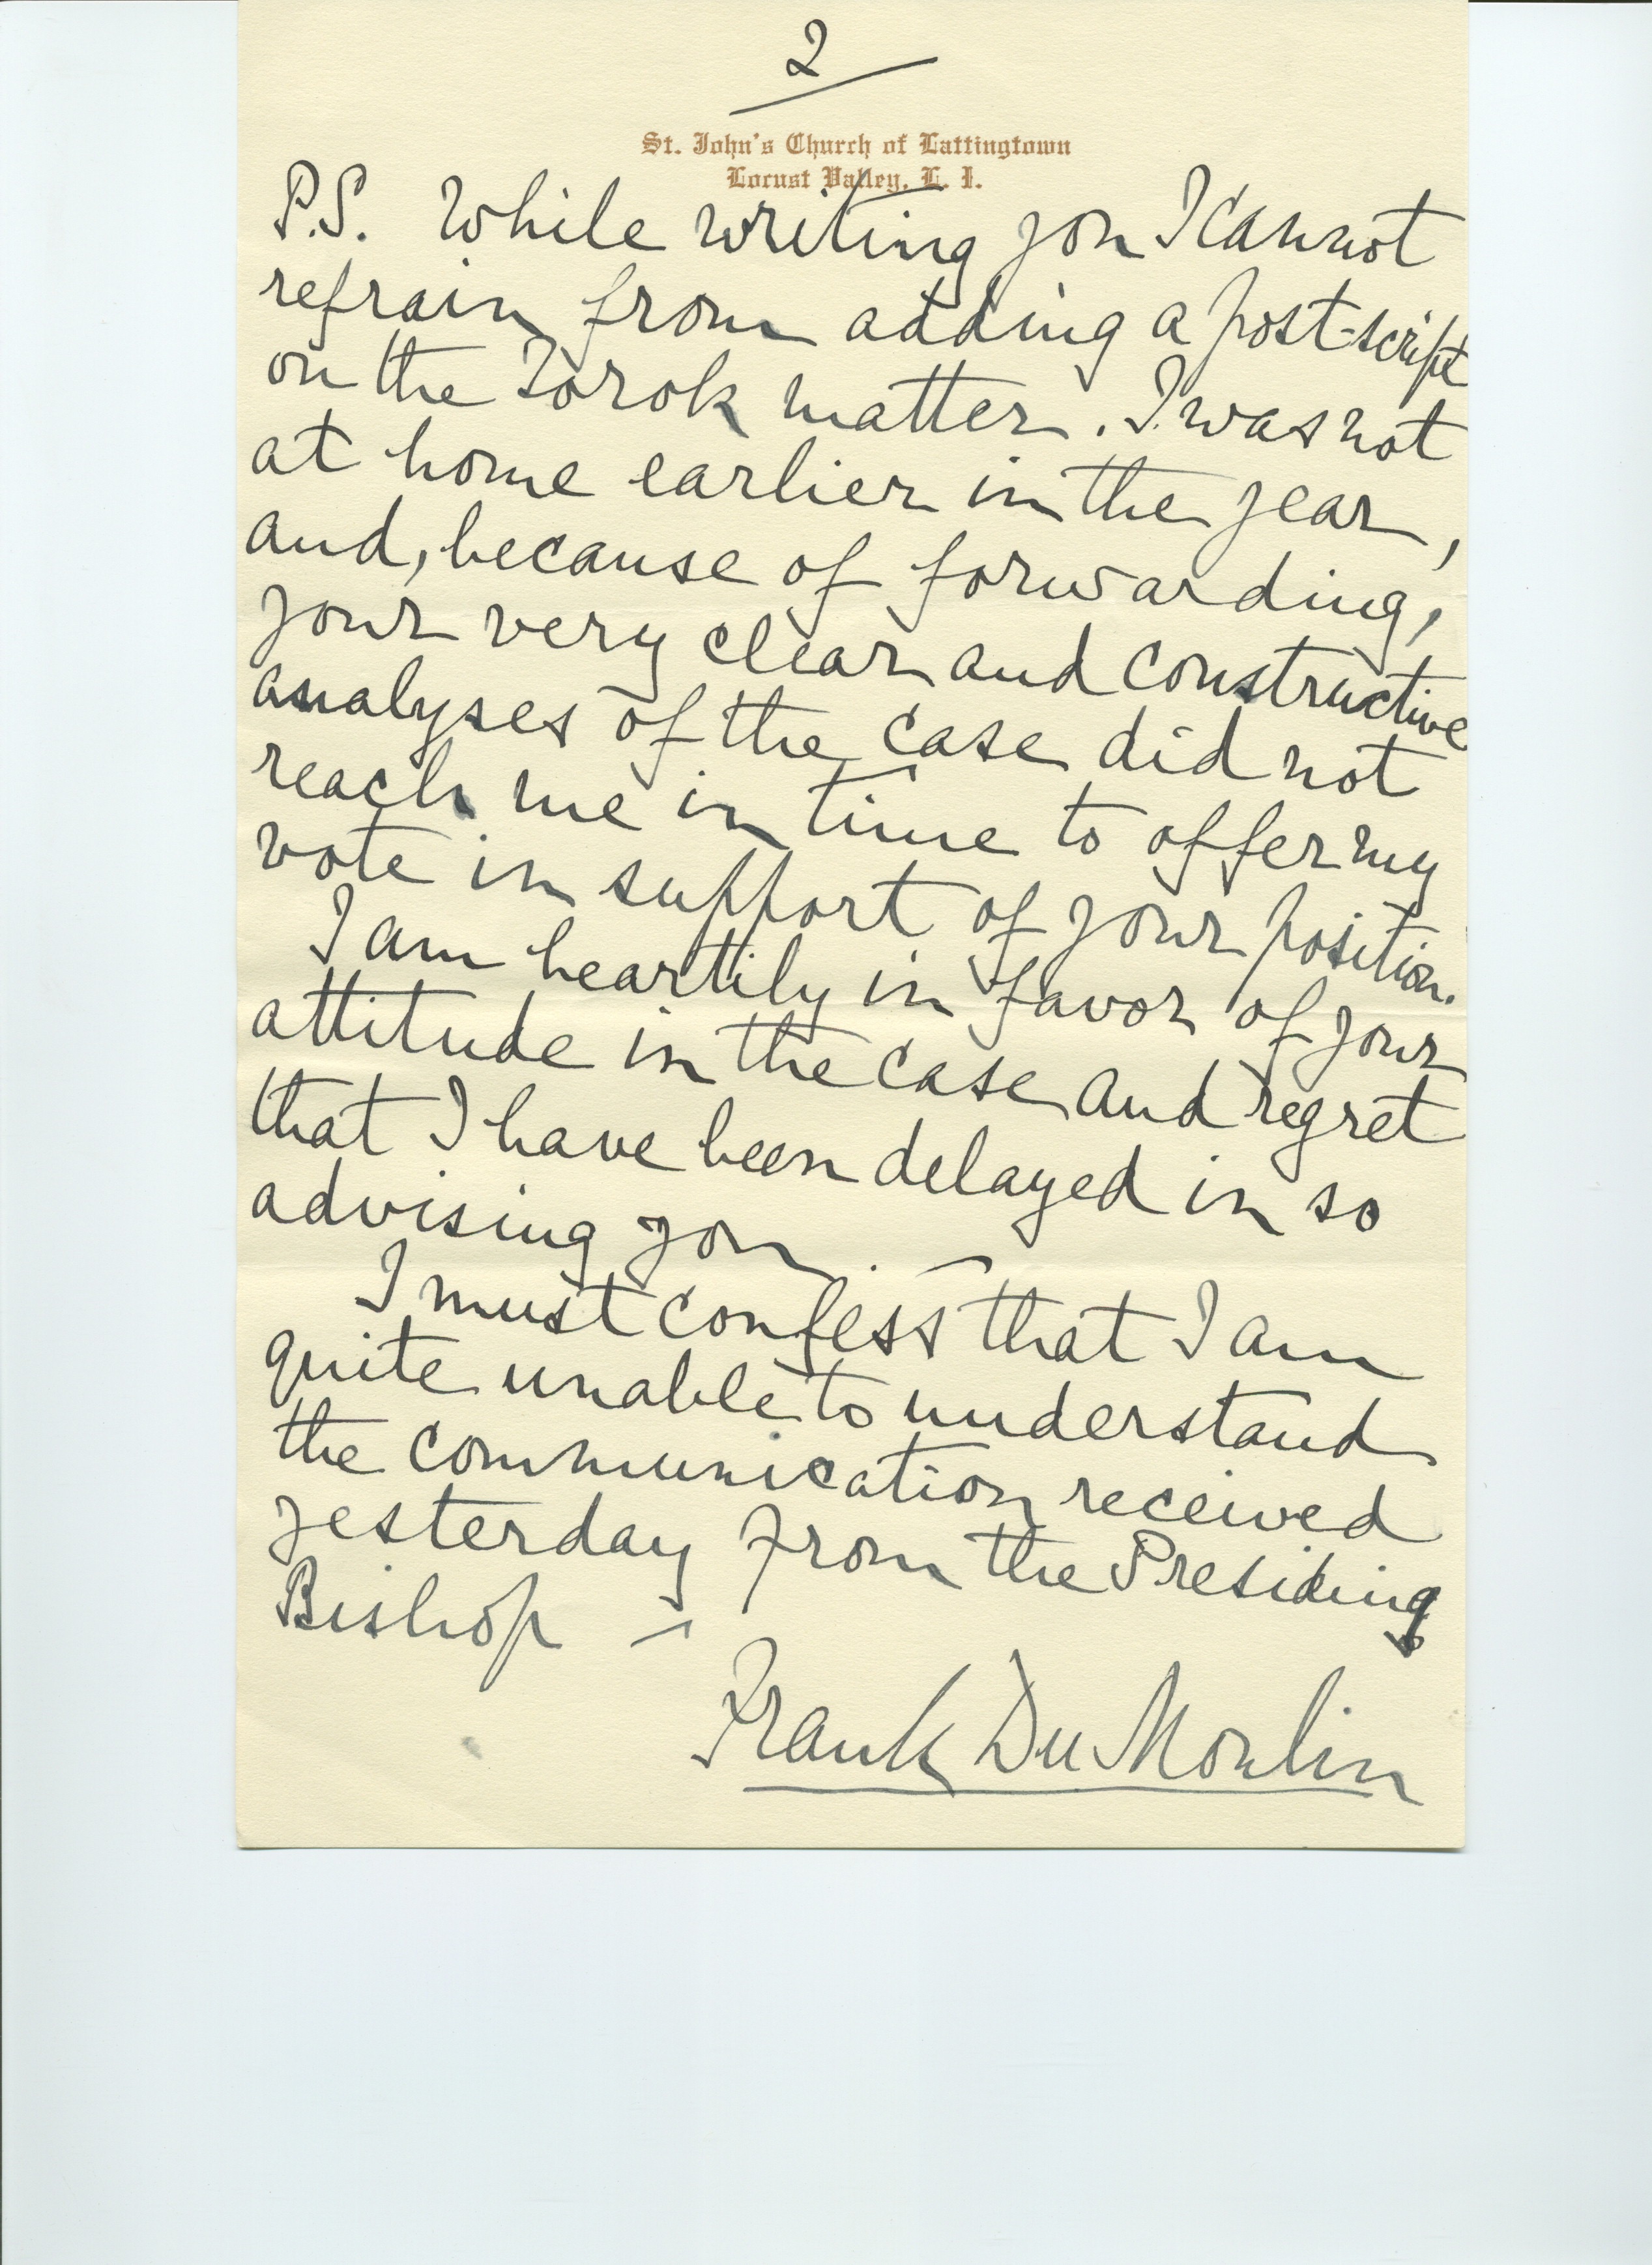 2
St. John's Church of Lattingtown
Locust Valley, L. I.
P.S. While writing you I cannot
refrain from adding a post-script
on the Torok matter. I was not
at home earlier in the year,
and, because of forwarding,
your very clear and constructive
analyses of the case did not
reach me in time to offer my
vote in support of your position.
I am heartily in favor of your
attitude in the case and regret
that I have been delayed in so
advising you. —
I must confess that I am
quite unable to understand
the communication received
yesterday from the Presiding
Bishop —
Frank Du Moulin